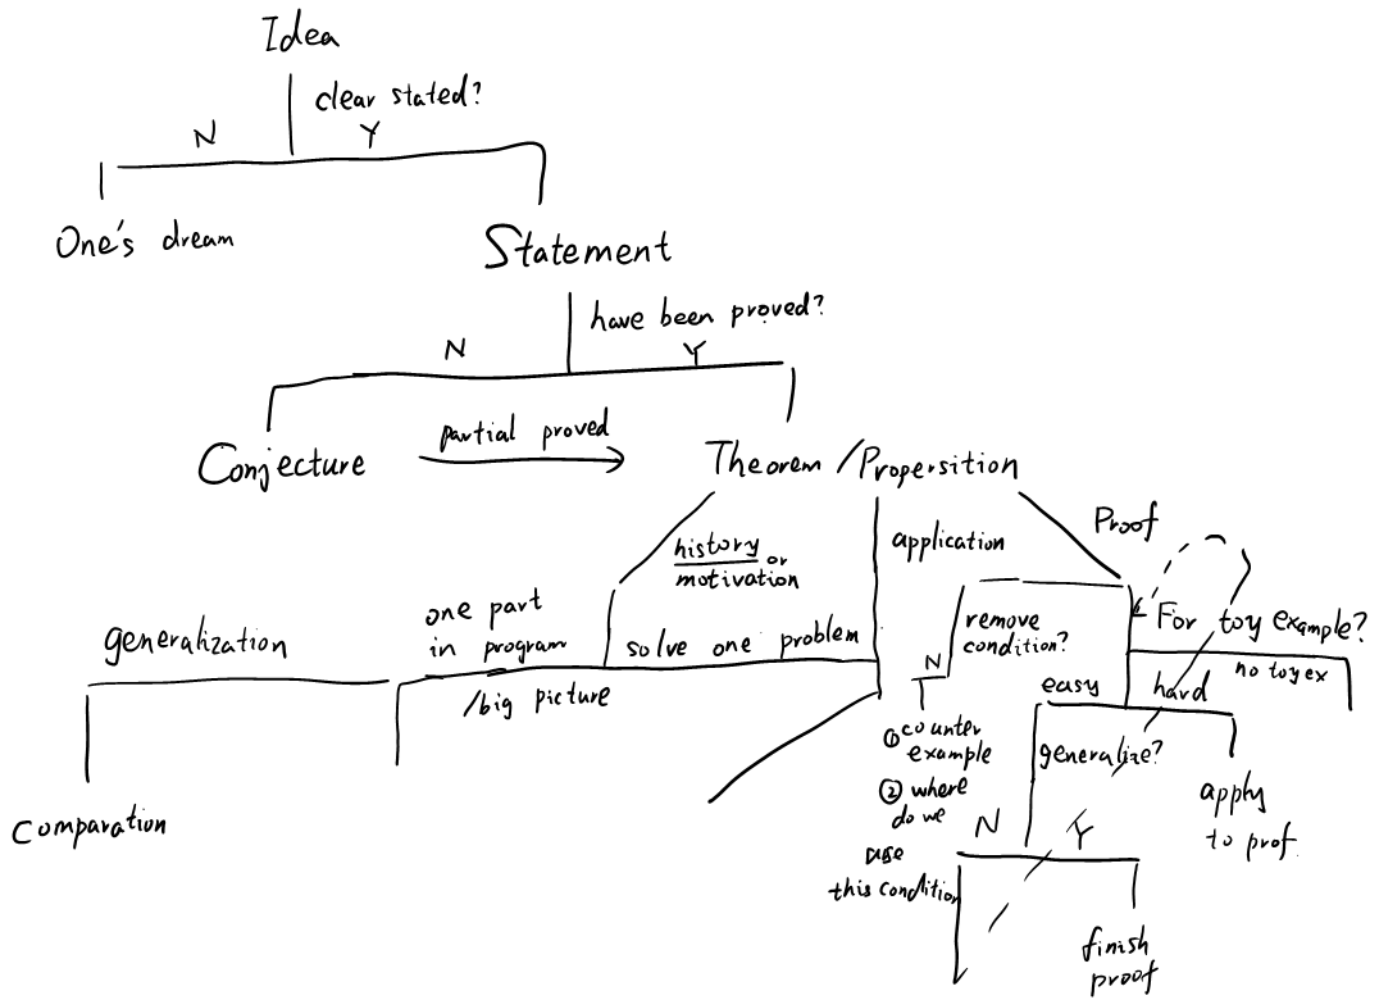 Idea
clear stated?
N
Y
One's dream
Statement
have been proved?
N
Y
Conjecture
partial proved
Theorem / Propersition
history
or
motivation
application
Proof
generalization
one part
in program
/big picture
solve one problem
remove
condition?
N
① counter
example
② where
do we
use
this condition
For toy example?
no toy ex
easy
hard
generalize?
apply
to prof.
N
Y
finish
proof
Comparation